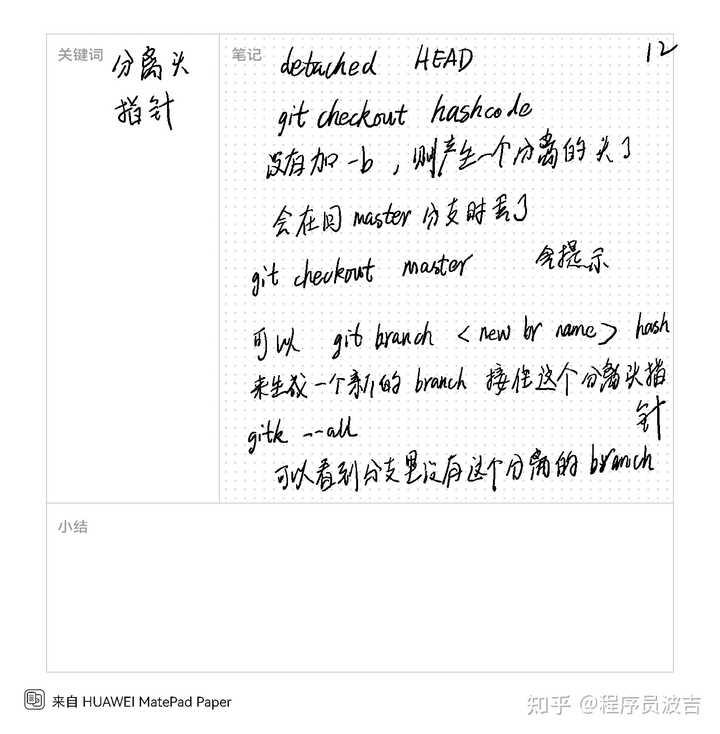 关键词
分离头
指针
笔记
12
detached HEAD
git checkout hashcode
没有加 -b ，则产生一个分离的头了
会在回 master 分支时丢了
git checkout master 会提示
可以 git branch <new br name> hash
来生成一个新的 branch 接住这个分离头指
针
gitk --all
可以看到分支里没有这个分离的 branch
小结
来自 HUAWEI MatePad Paper
知乎 @程序员波吉